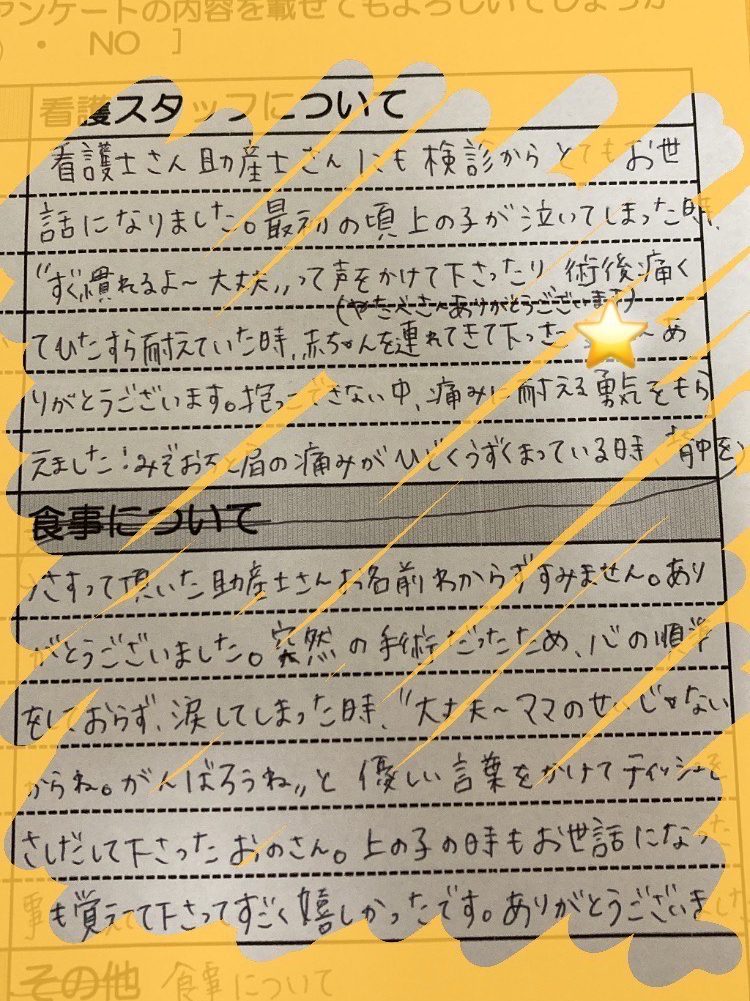 アンケートの内容を載せてもよろしいでしょうか
）・ NO ］
看護スタッフについて
看護士さん助産士さんにも検診からとてもお世
話になりました。最初の頃上の子が泣いてしまった時、
"すぐ慣れるよ〜大丈夫"って声をかけて下さったり 術後痛く
(やたべさんありがとうございます)
てひたすら耐えていた時、赤ちゃんを連れてきて下さっ 〜あ
りがとうございます。抱っこできない中、痛みに耐える勇気をもら
えました！みぞおちと肩の痛みがひどくうずくまっている時、背中を
食事について
さすって頂いた助産士さんお名前わからずすみません。あり
がとうございました。突然の手術だったため、心の順準
をしておらず、涙してしまった時、"大丈夫〜ママのせいじゃない
からね。がんばろうね"と優しい言葉をかけてティッシュを
さしだして下さったおのさん。上の子の時もお世話になった
事も覚えてて下さってすごく嬉しかったです。ありがとうございました
その他 食事について